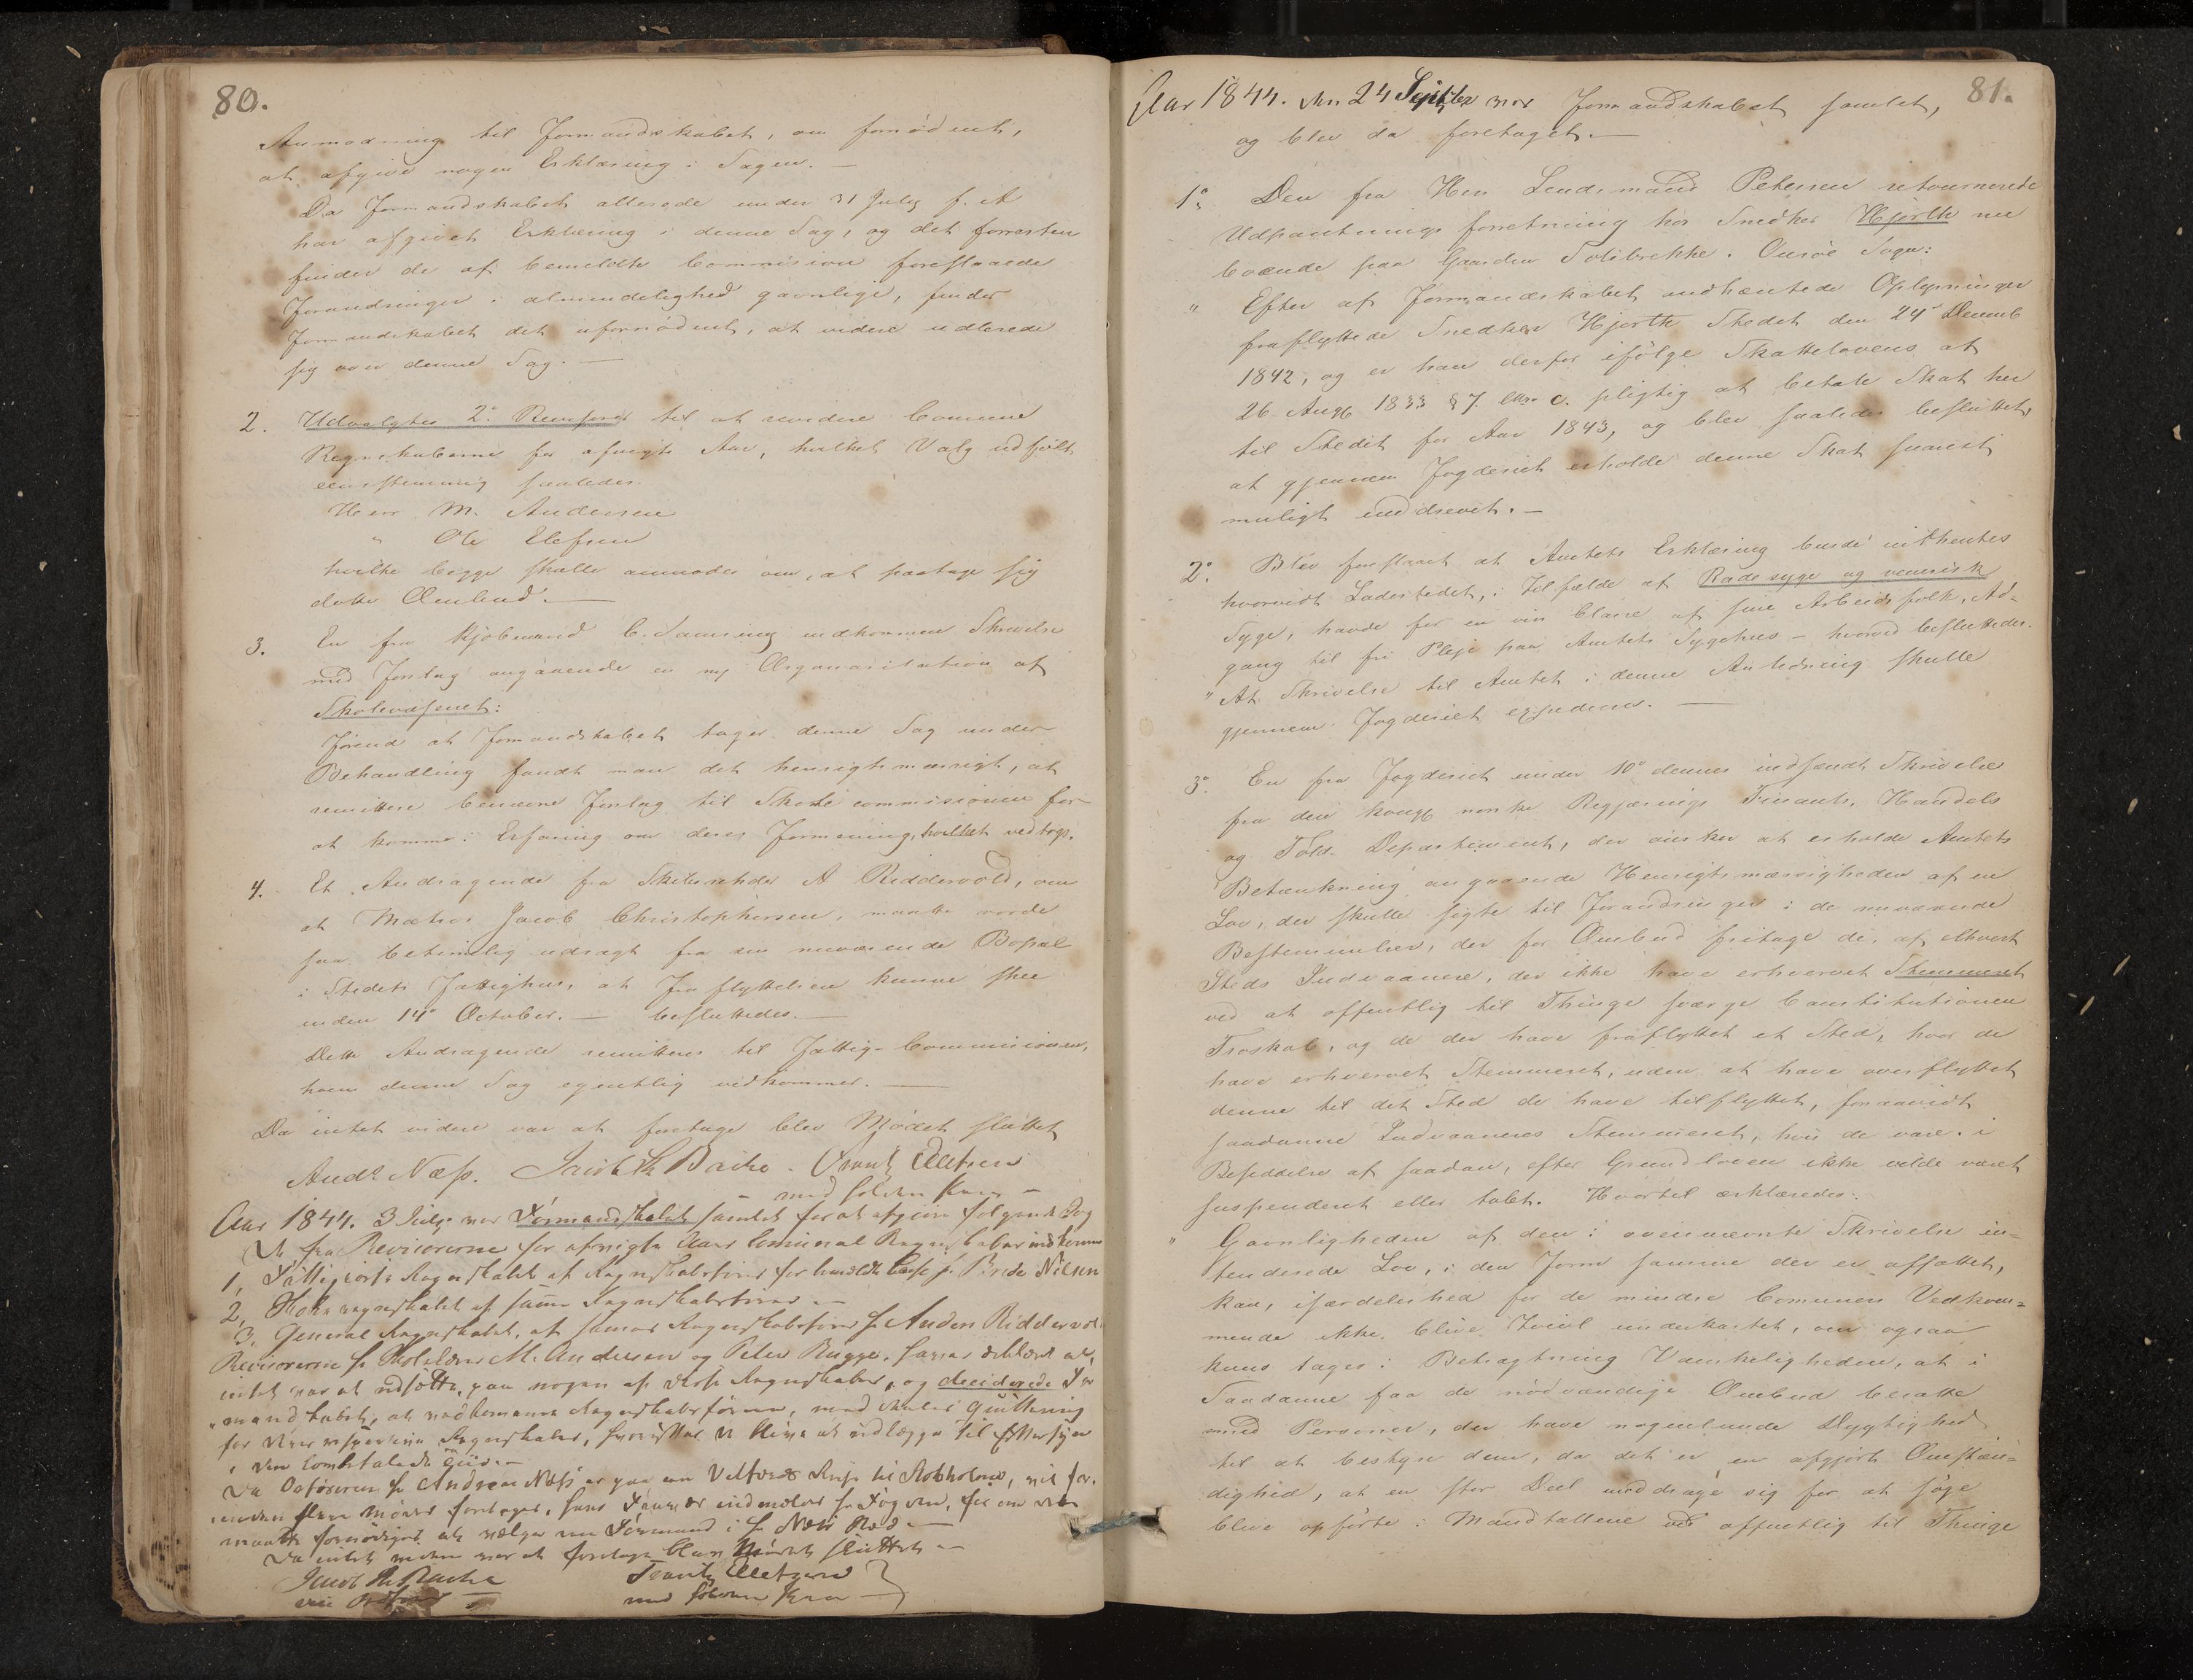 80.
Anmodning til Formandskabet, om fornødent,
at afgive nogen Erklæring i Sagen. —
Da Formandskabet allerede under 31 July f. A
har afgivet Erklæring i denne Sag, og det forresten
finder de af bemeldte Commision foreslaaede
Forandringer i almindelighed gavnlige, finder
Formandskabet det ufornødent, at videre udlade
sig over denne Sag. —
2. Udvalgtes 2de Revisorer til at revidere Commune
Regnskaberne for afvigte Aar, hvilket Valg udfaldt
eenstemmig saaledes
Herr M. Andersen
" Ole Elefsen
hvilke begge skulle anmodes om, at paatage sig
dette Ombud. —
3. En fra Kjøbmand C. indkommen Skrivelse
med Forslag angaaende en ny Organisation af
Skolevæsenet:
Førend at Formandskabet tager denne Sag under
Behandling fandt man det hensigtsmæssigt, at
remittere benævnte Forslag til Skolecommisionen for
at komme i Erfaring om deres Formening, hvilket vedtogs.
4. Et Andragende fra A Riddervold, om
at Madme Jacob Christophersen, maatte vorde
saa betimelig udsagt fra sin nuværende Bopæl
i Stedets Fattighus, at Fraflyttelsen kunne skee
inden 14de October. — besluttedes. —
Dette Andragende remitteres til Fattig-Commissionen,
hvem denne Sag egentlig vedkommer. —
Da intet videre var at foretage blev Mødet sluttet
Andr Næss. Jacob Th Bache. Frantz Elletsen
med holden Pen —
Aar 1844. 3 July var Formandskabet samlet for at afgjøre følgende Sag
De fra Revisorerne for afvigte Aars Comunal Regnskaber indkomne
1, Fattigvæsts Regnskabet af Regnskabsfører for bemeldte Casse hr Brede Nilsen
2, Skole regnskabet af samme Regnskabsfører —
3, General Regnskabet, af sammes Regnskabsfører hr Anders Riddervold
Revisorerne hr Skolelærer M. Andersen og Peter Bugge, havde erklæret at
intet var at udsætte paa nogen af disse Regnskaber, og deciderede For
mandskabet, at vedkommende Regnskabsførere, med deres Quittering
for deres respective Regnskaber, hvorefter de blive at udlægge til Eftersyn
i den lovbefalede Tid. —
Da Ordføreren hr Andreas Næss er paa en Velfærds Reise til Stokholm, vil for-
inden flere Møder foretages, hans Fravær indmeldes hr Fogden, for om det
maatte fornødiges at vælge en Formand i hr Næss Sted. —
Da intet videre var at foretage blev Mødet sluttet —
Jacob Th Bache Frantz Elletsen
med holden Pen —
81.
Aar 1844. den 24 Septbr var Formandskabet samlet,
og blev da foretaget. —
1o Den fra Herr Lendsmand Petersen retournerede
Udpantnings forretning hos Snedker Hjorth nu
boende paa Gaarden Solibrekke. Onsøe Sogn:
" Efter af Formandskabet indhentede Oplysninger
fraflyttede Snedker Hjorth Stedet den 24de Decemb
1842, og er han derfor ifølge Skattelovens af
26 Augs 1833 §7. Litr. c. pligtig at betale Skat her
til Stedet for Aar 1843, og blev saaledes besluttet,
at gjennem Fogderiet erholde denne Skat snarest
muligt inddrevet. —
2o. Blev foreslaaet at Amtets Erklæring burde indhentes
hvorvidt Ladestedet, i Tilfælde af Radesyge og venerisk
Syge, havde for en vis Classe af sine Arbeidsfolk, Ad-
gang til fri Pleje paa Amtets Sygehus — hvorved besluttedes.
" At Skrivelse til Amtet i denne Anledning skulde
gjennem Fogderiet expederes. —
3o. En fra Fogderiet under 10de dennes indsendt Skrivelse
fra den kongl norske Regjerings Finants, Handels
og Told-Departement, der ønsker at erholde Amtets
Betænkning angaaende Hensigtsmæssigheden af en
Lov, der skulle sigte til Forandringer i de nuværende
Bestemmelser, der for Ombud fritage de, af ethvert
Steds Indvaanere, der ikke have erhvervet Stemmeret
ved at offentlig til Thinge sværge Constitutionen
Troskab, og de der have fraflyttet et Sted, hvor de
have erhvervet Stemmeret, uden at have overflyttet
denne til det Sted de have tilflyttet, forsaavidt
saadanne Indvaaneres Stemmeret, hvis de vare i
Besiddelse af saadan, efter Grundloven ikke vilde været
suspenderet eller tabt. Hvortil erklæredes:
" Gavnligheden af den i ovennævnte Skrivelse in-
tenderede Lov, i den Form samme der er affattet,
kan, isærdeleshed for de mindre Comuners Vedkom-
mende ikke blive Tvivl underkastet, om ogsaa
kuns tages i Betragtning Vanskeligheden, at i
Saadanne faa de nødvendige Ombud besatte
med Personer, der have nogenlunde Dygtighed
til at bestyre dem, da det er en afgjort Omstæn-
dighed, at en stor Deel unddrage sig for at søge
blive opførte i Mandtallene ved offentlig til Thinge